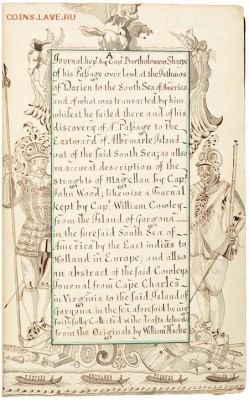 СОИНS.ЛАV.RU
A
Journal kept by Cap.t Bartholomew Sharpe
of his Passage overland at the Isthmos
of Darien to the South Sea of America
and of what was transacted by him
whilest he sailed there and of his
discovery of A Passage to the
Eastward of Albemarle Island
out of the said South Sea; as also
an accurat description of the
Straghts of Magellan by Cap.t
John Wood; likewise a Journal
kept by Cap.t William Cowley
from the Island of Gorgona
in the foresaid South Sea of
America by the East indies to
Holland in Europe; and also
an abstract of the said Cowleys
Journal from Cape Charles
in Virginia to the said Island of
Gorgona in the sea aforesaid being
faithfully Collected with drafts
from the Originals by William Hacke